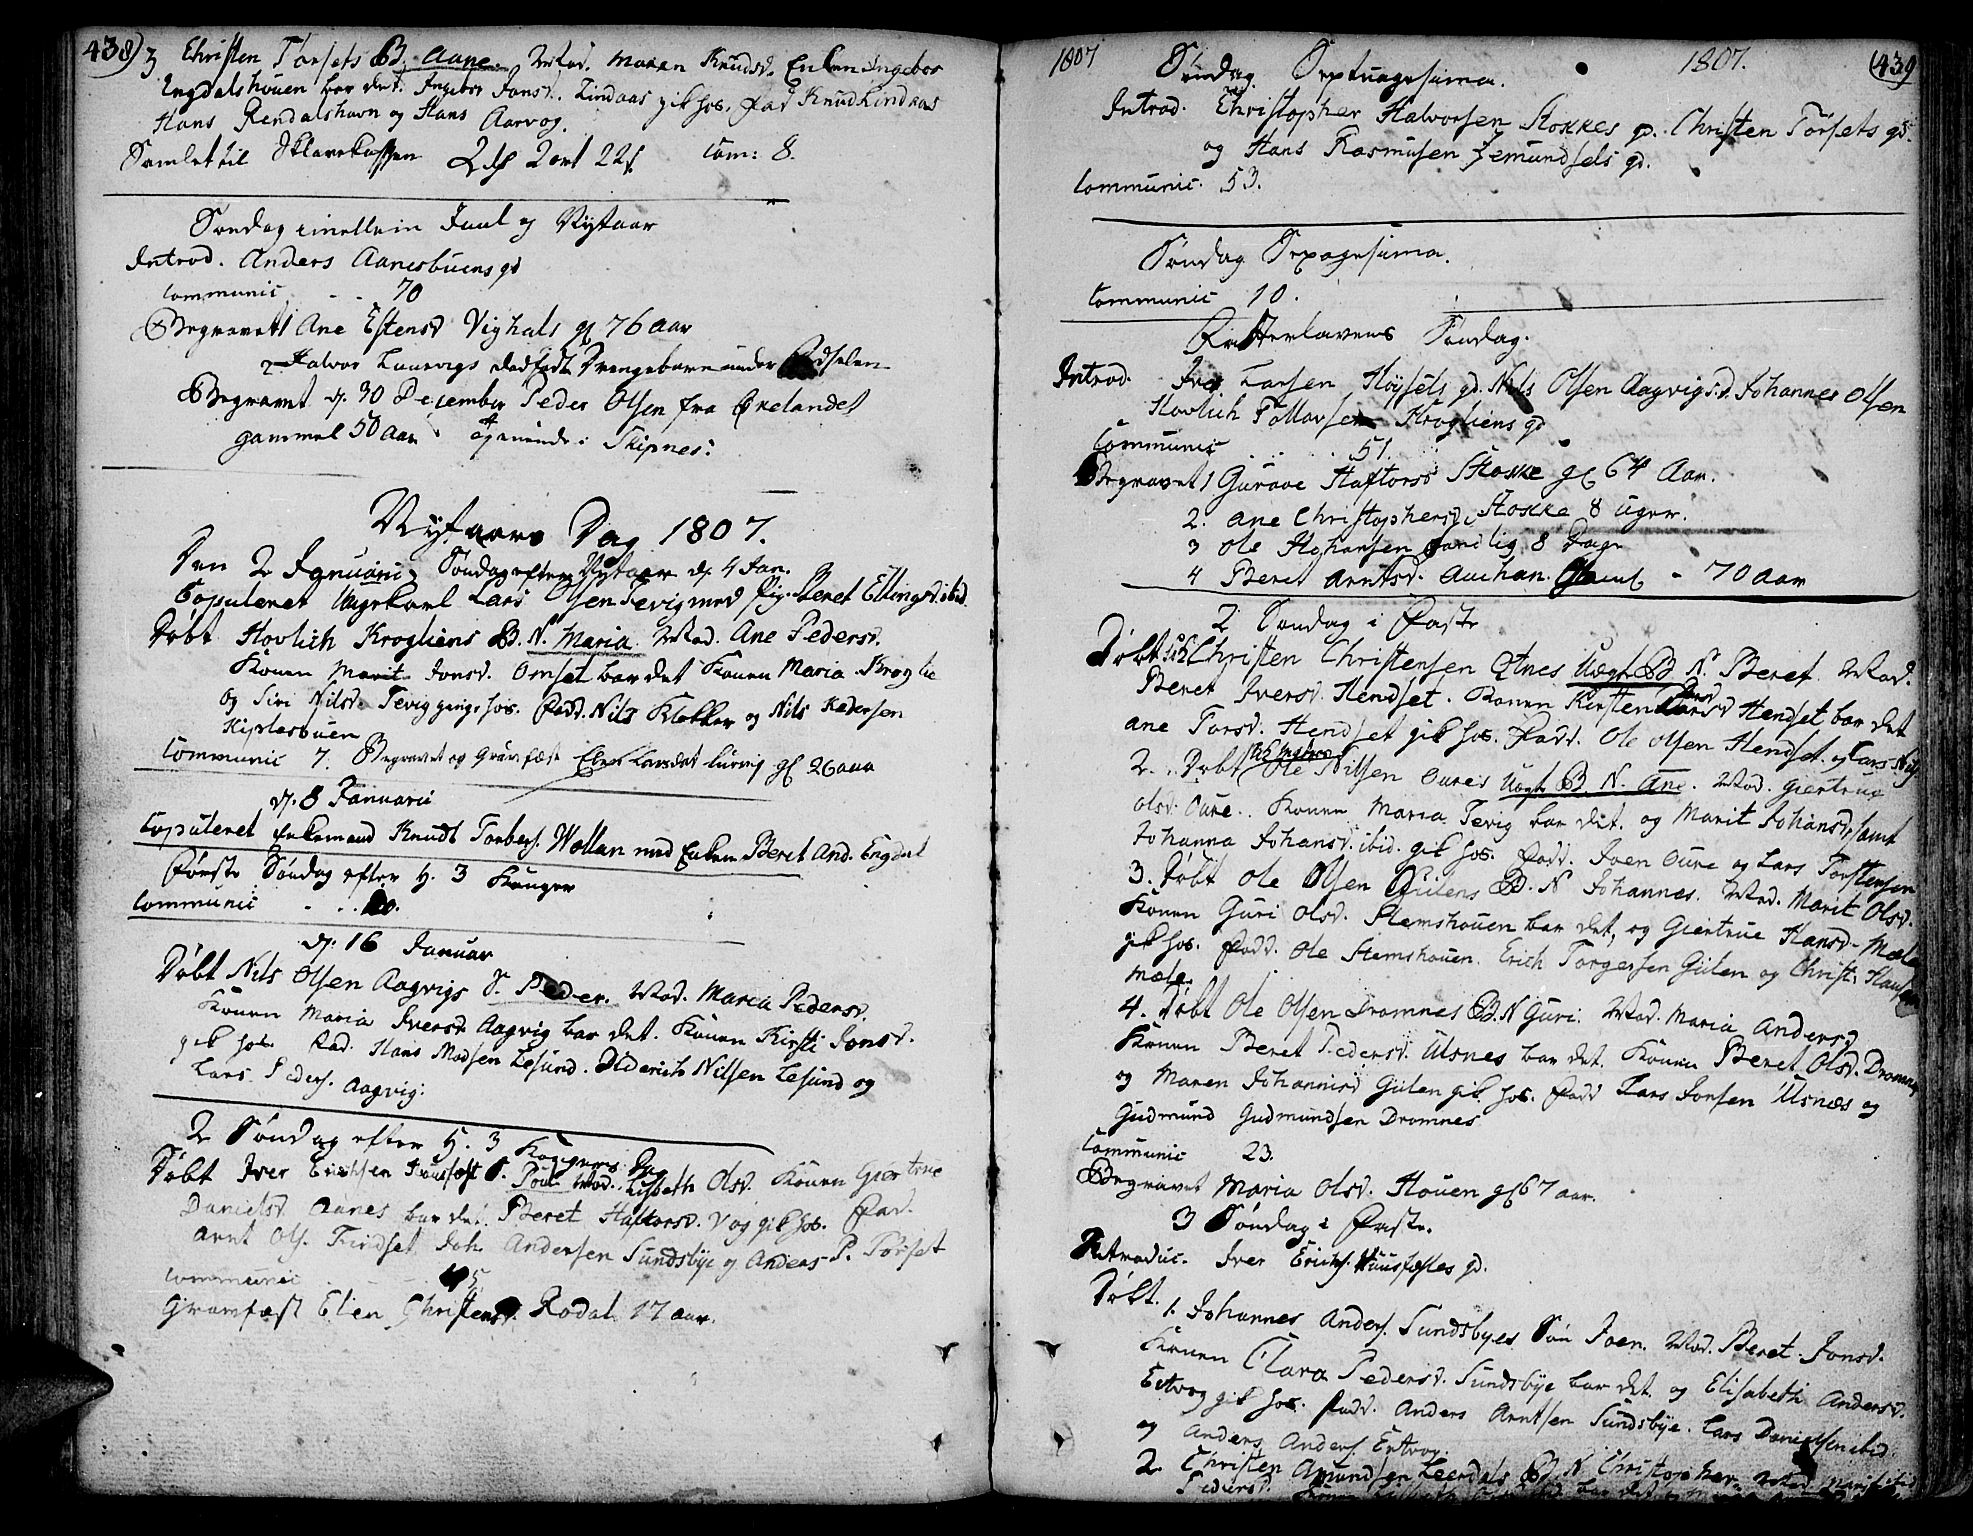 438
3 Christen Torsets B. Aane. Mod. Maren Knudsd. Enken Ingebor
Engdalshouen bar det. Ingebor Jonsd. Lindaas gik hos. Fad Knud Lindaas
Hans Rendalshavn og Hans Aarvog.
Samlet til Sklavekassen 2 ort 22 s. Com: 8.
Søndag imellem Juul og Nytaar
Introd. Anders Aanesbuens gd
Communic - - 70
Begravet 1 Ane Estensd Vighals gl 76 Aar
2 Halvor Laurvigs dødfødt Drengebarn under Fødselen
Begravet d. 30 December Peder Olsen fra Ørelandet
gammel 50 Aar Skipnes:
Nytaars Dag 1807.
Den 2 Januarii Søndag efter Nytaar d. 4 Jan.
Copuleret Ungekarl Lars Olsen Tevig med Pig. Beret Ellingsd. ibid.
Døbt Hovlich Krogliens B. N. Maria. Mod. Ane Pedersd.
Konen Marit Jonsd. Omset bar det Konen Maria Kroglie
og Siri Nilsd. Tevig ging hos. Fadd. Nils Klokker og Nils Pedersen
Kiplesbuen
Communic 7. Begravet og Gravfæst Elen Larsdat Lurvig gl 26 aar
d. 8 Januarii
Copuleret Enkemand Knudt Torbers. Wollan med Enken Beret And. Engdal
Første Søndag efter H. 3 Konger
Communic - - 20.
d. 16 Januar
Døbt Nils Olsen Aagvigs S. Peder. Mod. Maria Pedersd.
Konen Maria Iversd Aagvig bar det. Konen Kirsti Jonsd.
gik hos. Fad. Hans Madsen Lesund. Diderich Nilsen Lesund og
Lars Peders. Aagvig.
2 Søndag efter H. 3 Kongers Dag
Døbt Iver Erichsen Huusfæst S. Poul Mod. Lisbeth Olsd. Konen Giertrue
Danielsd Aanes bar det. Beret Haftorsd. Vog gik hos. Fad.
Arnt Ols. Tindset Joh. Andersen Sundsbye og Anders P. Torset
Communic - - 45
Gravfæst Elen Christensd. Rodal 17 aar.
1807 Søndag Septuagesima. 1807. 439
Introd. Christopher Halvorsen Stokkes gd. Christen Torsets gd.
og Hans Rasmusen Gemundsets gd.
Communic. 53.
Søndag Sexagesima.
Communic 10.
Fasterlavens Søndag.
Introd. Iver Larsen Høysets gd. Nils Olsen Aagvigs gd. Johannes Olsen
Hovlich Tollevsen Krogliens gd
Communic . . . . 51.
Begravet 1 Guroae Haftorsd Stokke gl 64 Aar.
2. Ane Christophersd. Stokke 8 uger.
3 Ole Johansen 8 Dage
4 Beret Arntsd. Auchan. - 70 aar
2 Søndag i Faste
Døbt Christen Christensen Otnes Uægt B. N. Beret. Mod.
Beret Iversd. Hendset. Konen Kirsten Larsd Hendset bar det
Ane Torsd. Hendset gik hos. Fadd. Ole Olsen Hendset og Lars Nils
2. Døbt Ole Nilsen Oures Uægt B. N. Ane. Mod. Giertrue
Olsd. Oure. Konen Maria Tevig bar det. og Marit Johansd, samt
Johanna Johansd. ibid. gik hos. Fadd. Joen Oure og Lars Torstensen
3. Døbt Ole Olsen Gulens B. N Johannes. Mod. Marit Olsd.
Konen Guri Olsd. Stemshouen bar det, og Giertrue Hansd. Mæle
gik hos. Fadd. Ole Stemshouen. Erich Torgersen Gulen og Christ. Hansen
Mæle.
4. Døbt Ole Olsen Dromnes B. N Guri. Mod. Maria Andersd
Konen Beret Pedersd. Ulsnes bar det. Konen Beret Olsd. Dromnes
og Maren Johannisd Gulen gik hos. Fadd Lars Jonsen Ulsnæs og
Gudmund Gudmundsen Dromnes
Communic 23.
Begravet Maria Olsd. Houen gl 67 aar.
3 Søndag i Faste.
Introduc. Iver Erichs. Huusfæstes gd.
Døbt. 1. Johannes Anders. Sundsbyes Søn Joen. Mod. Beret Jonsd.
Konen Clara Pedersd. Sundsbye bar det. og Elisabeth Andersd.
Ertvog gik hos. Fadd. Anders Arntsen Sundsbye. Lars Danielsen ibid.
og Anders Anders. Ertvog.
2. Christen Amundsen Leerdals B. N. Christopher. Mod. Marit
Pedersd.